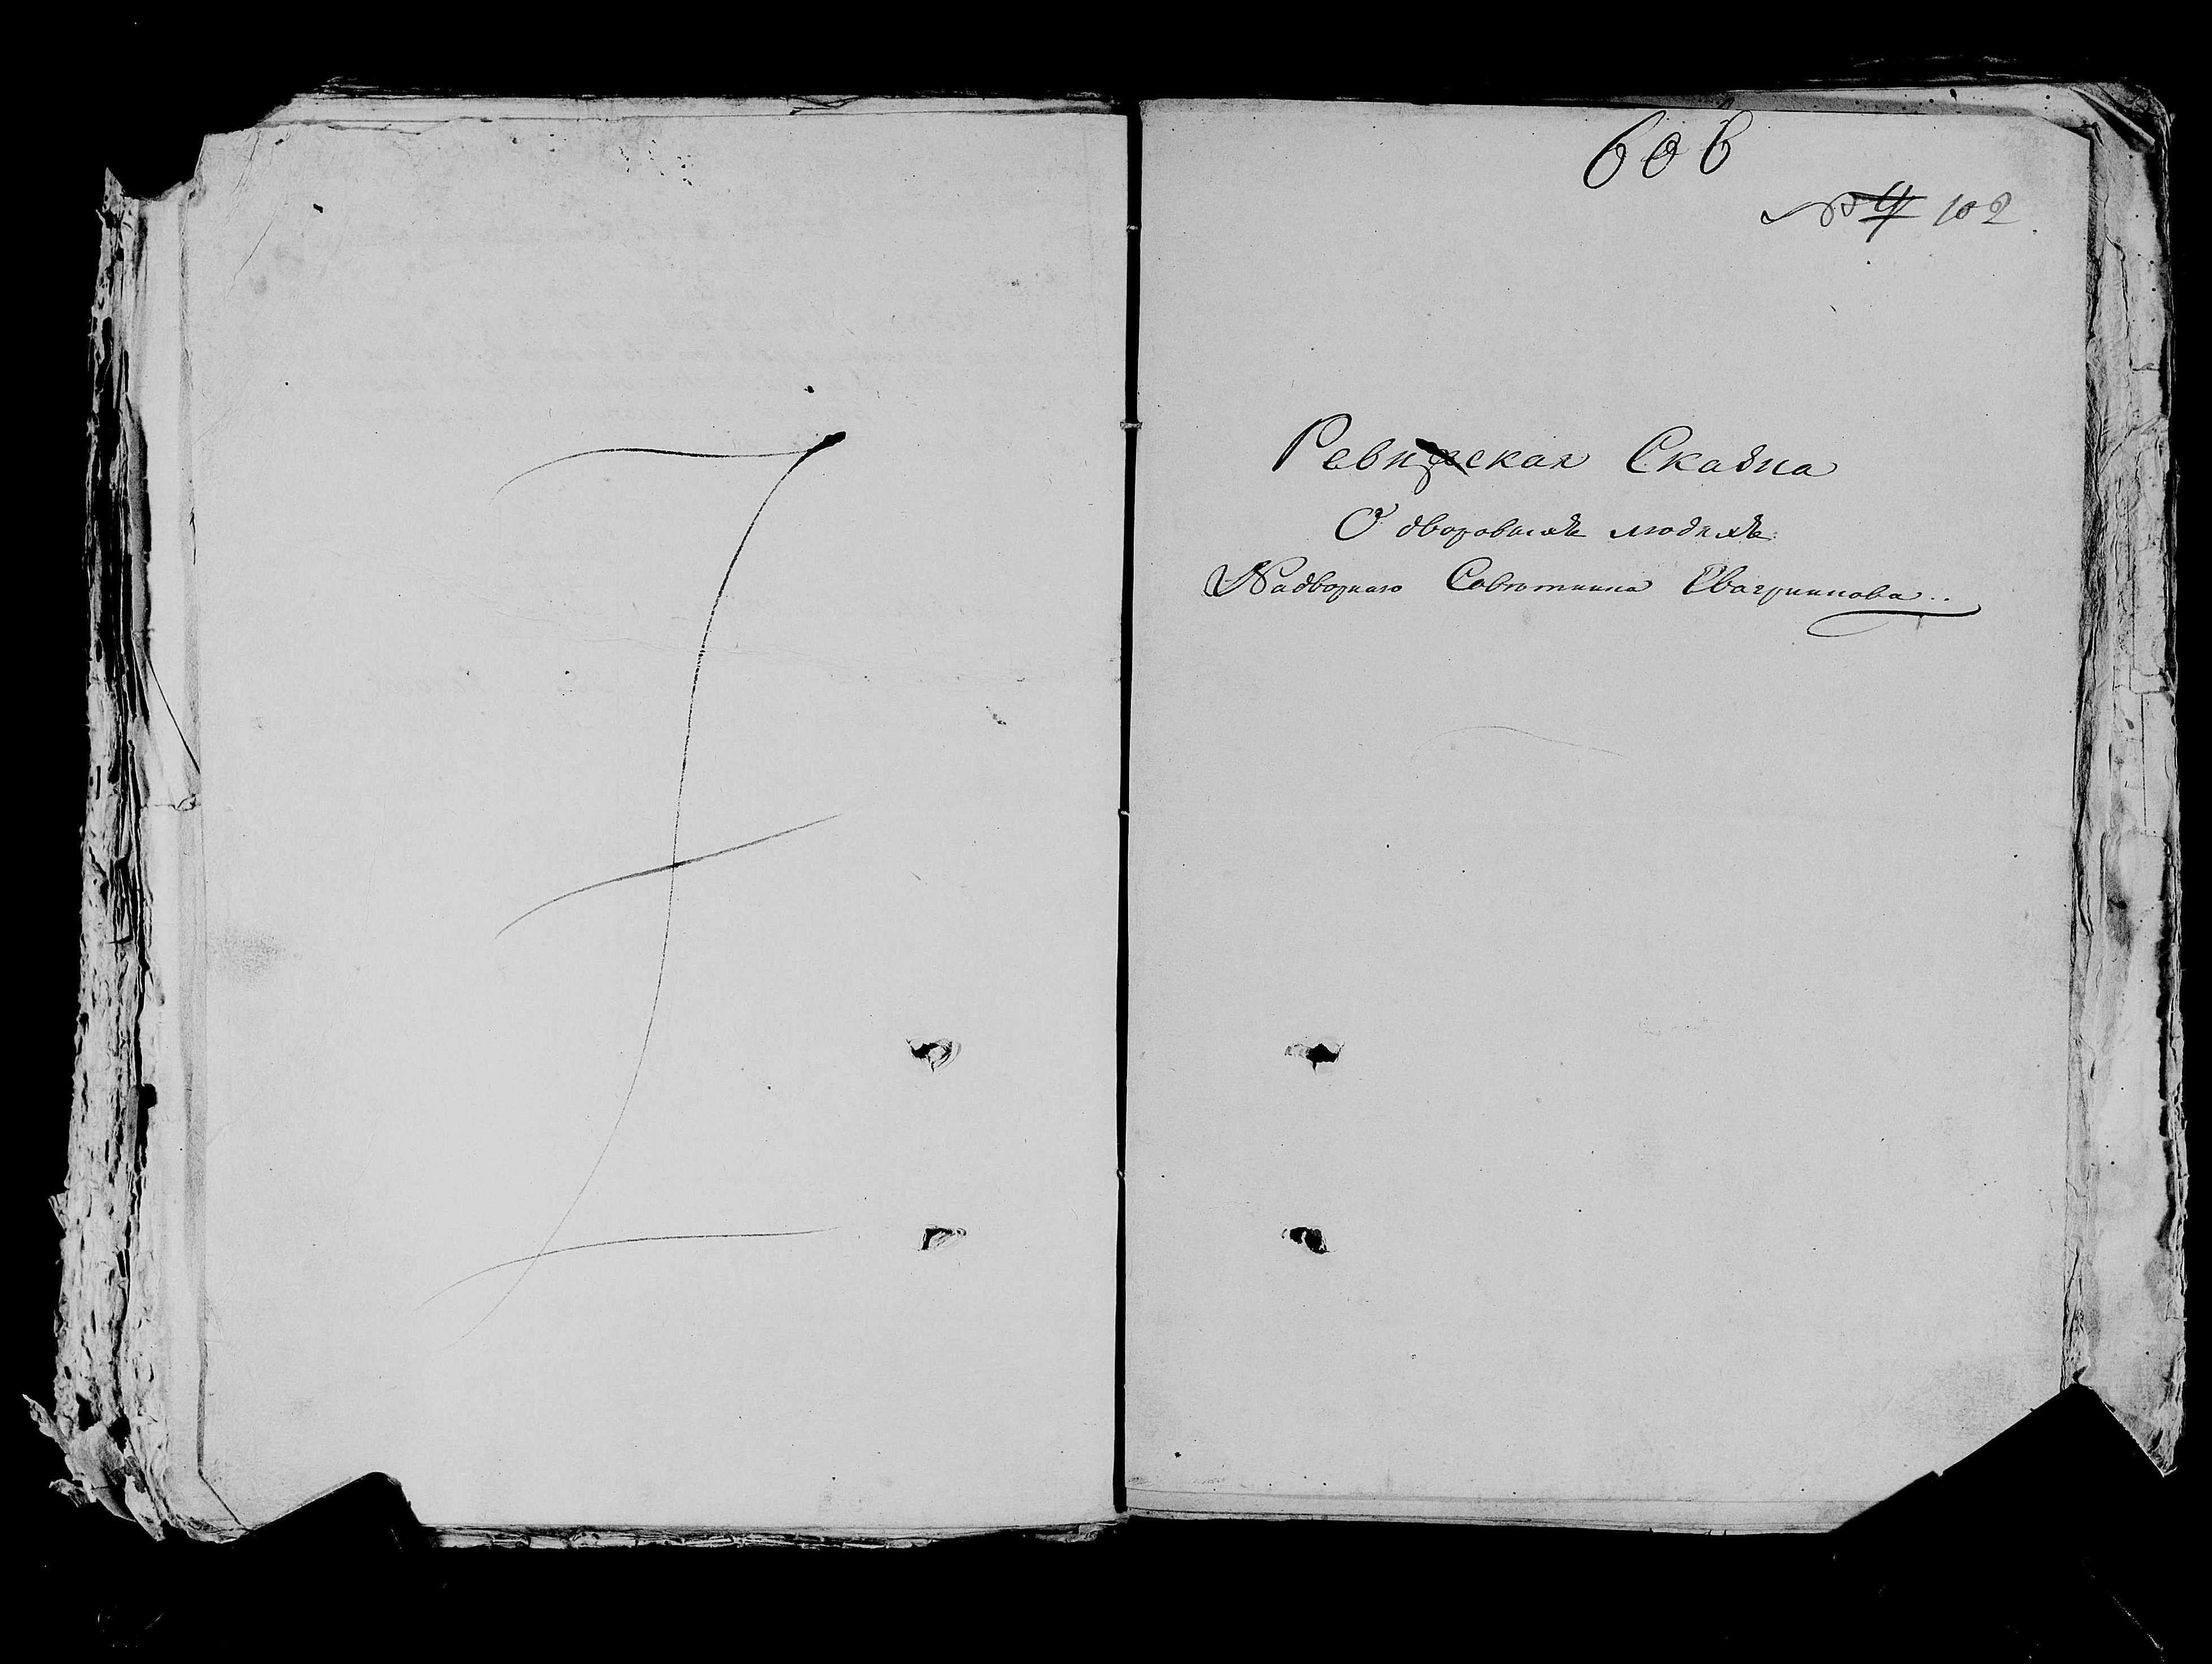 606
№ 4 102
Ревизская Сказка
О дворовыхъ людяхъ
Надворнаго Советника Евагрникова